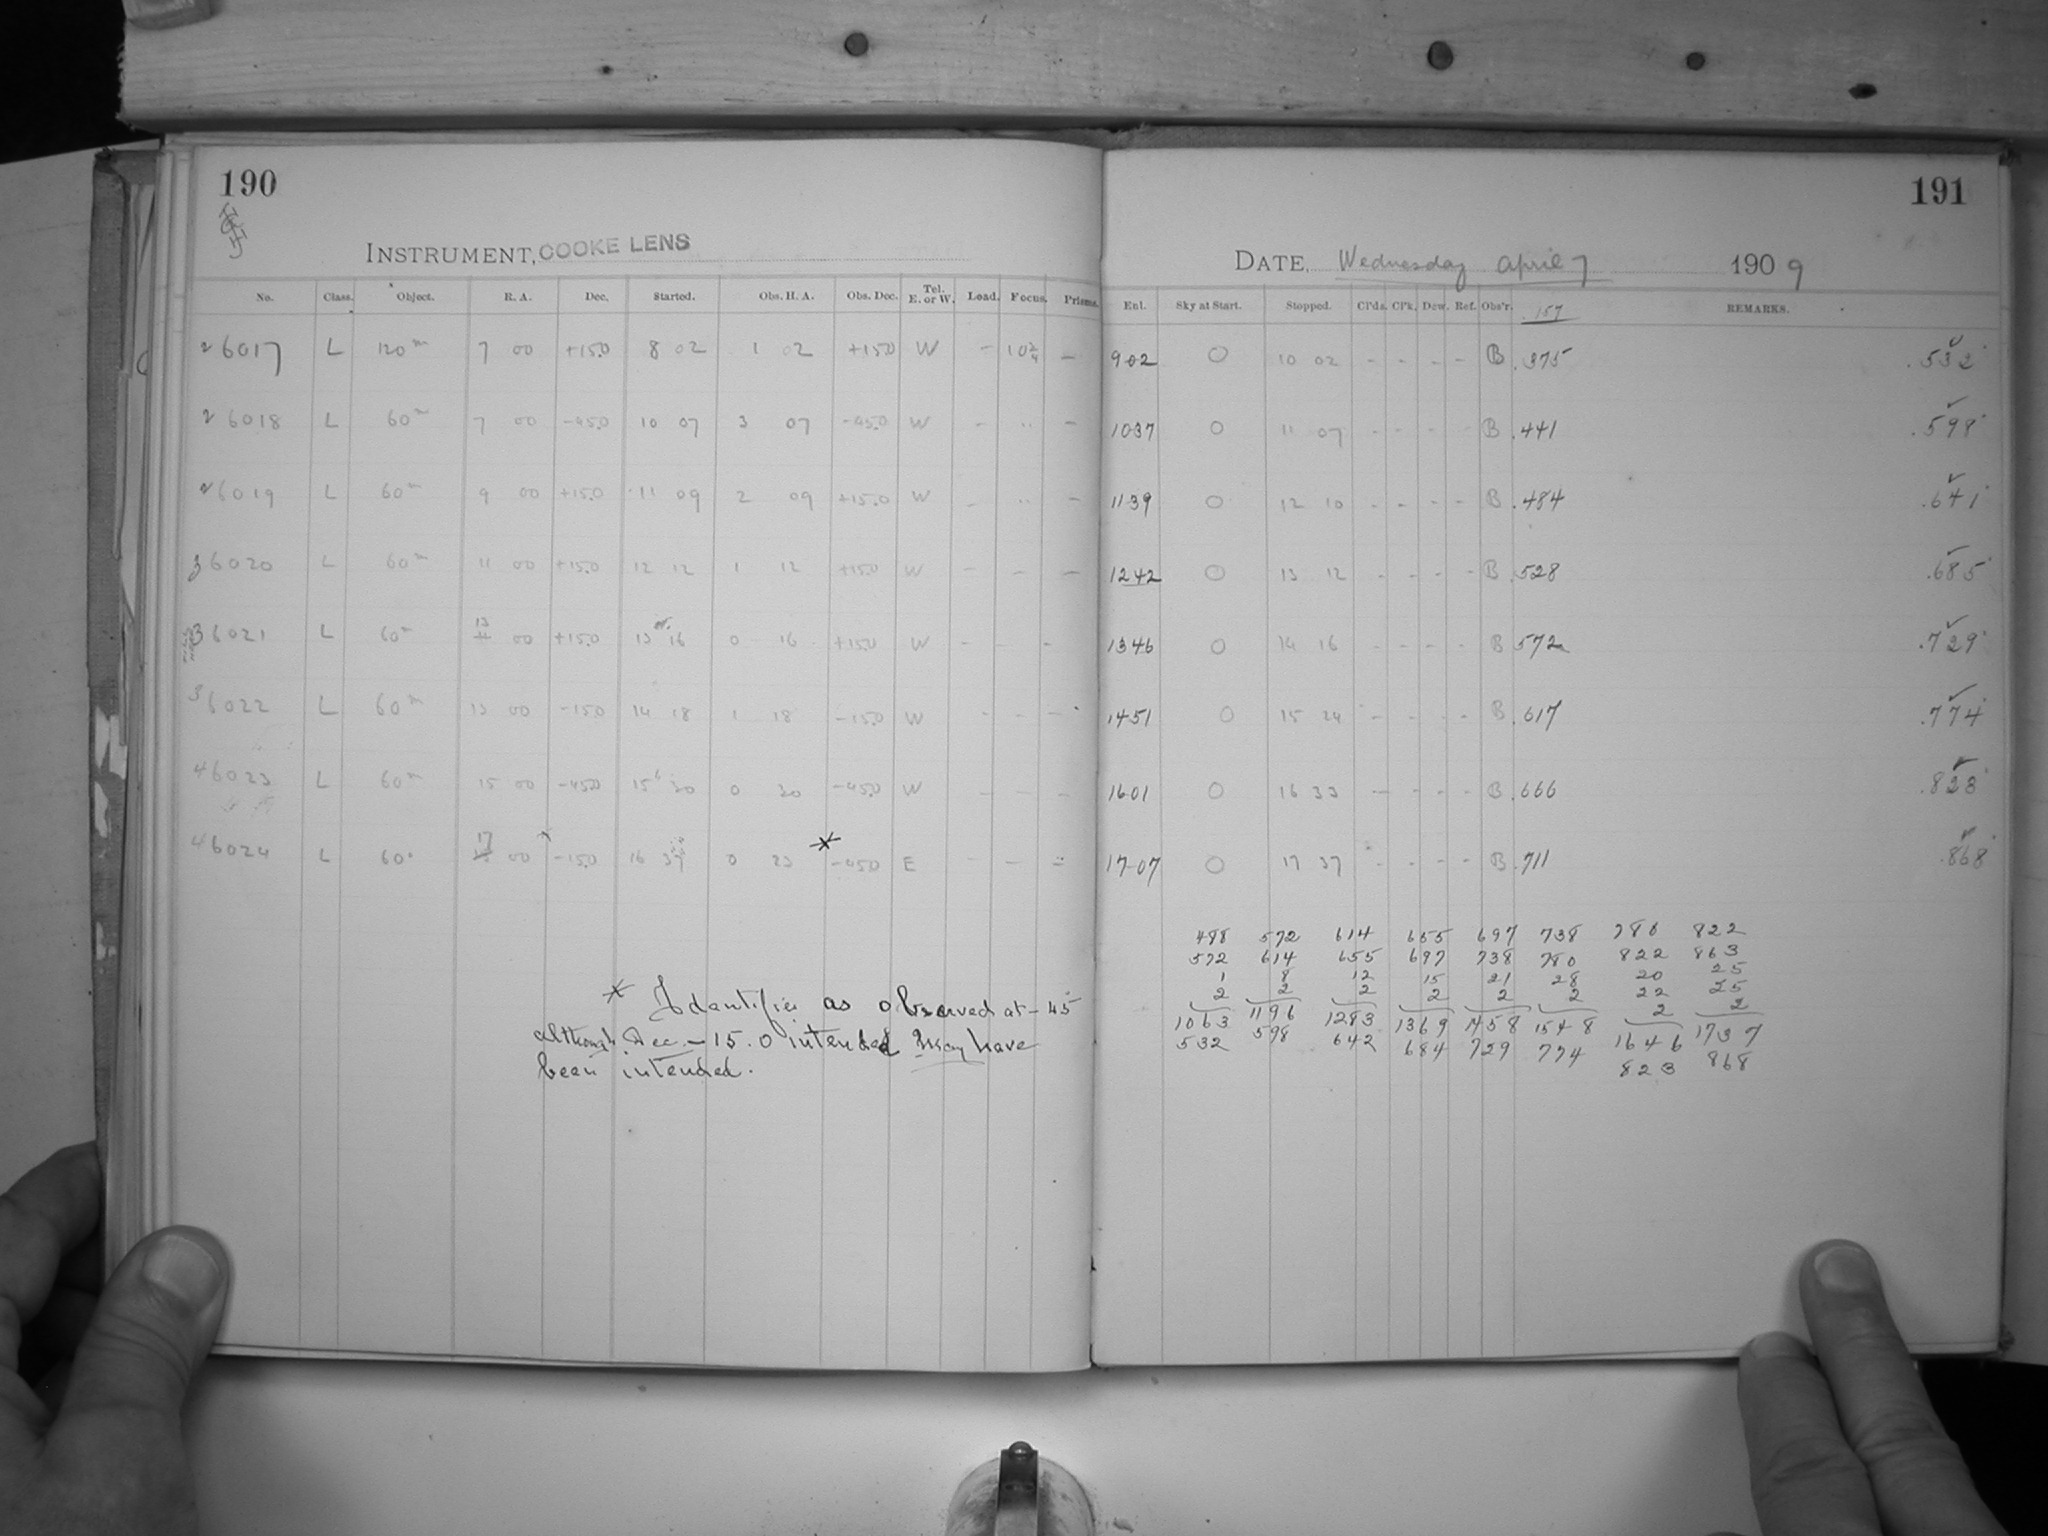 190
INSTRUMENT, COOKE LENS
No. Class. Object. R. A. Dec. Started. Obs. H. A. Obs. Dec. Tel. E. or W. Load. Focus. Prisms.
26017 L 120m 7 00 +15.0 8 02 1 02 +15.0 W - 10 2/4 -
26018 L 60m 7 00 -45.0 10 07 3 07 -45.0 W - " -
26019 L 60m 9 00 +15.0 11 09 2 09 +15.0 W - " -
36020 L 60m 11 00 +15.0 12 12 1 12 +15.0 W - - -
36021 L 60m 13 00 +15.0 13 16 0 16 +15.0 W - - -
36022 L 60m 13 00 -15.0 14 18 1 18 -15.0 W - - -
46023 L 60m 15 00 -45.0 15 30 0 30 -45.0 W - - -
46024 L 60m 17 00 -15.0 16 37 0 23 * -45.0 E - - -
* Identifies as observed at -45
although Dec. -15.0 intended May have
been intended.
191
DATE, Wednesday April 7 1909
Ent. Sky at Start. Stopped. Cl'ds. Cl'k. Dew. Ref. Obs'r. .157 REMARKS.
902 O 10 02 - - - - B .375 .532
1037 O 11 07 - - - - B .441 .598
1139 O 12 10 - - - - B .484 .641
1242 O 13 12 - - - - B .528 .685
1346 O 14 16 - - - - B .572 .729
1451 O 15 24 - - - - B .617 .774
1601 O 16 33 - - - - B .666 .823
17-07 O 17 37 - - - - B .711 .868
488 572 614 655 697 738 780 822
572 614 655 697 738 780 822 863
1 8 12 15 21 28 20 25
2 2 2 2 2 2 22 25
2 2
1063 1196 1283 1369 1458 1548 1646 1737
532 598 642 684 729 774 823 868